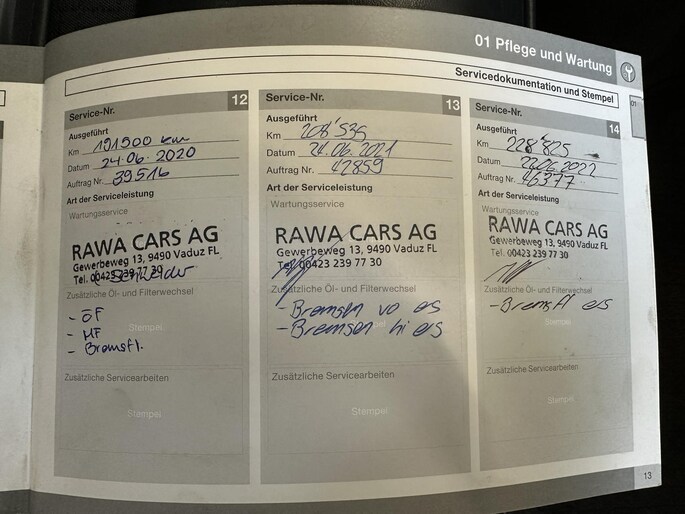 01 Pflege und Wartung
Servicedokumentation und Stempel
01
Service-Nr. 12
Ausgeführt
Km 191900 km
Datum 24.06.2020
Auftrag Nr. 39516
Art der Serviceleistung
Wartungsservice
RAWA CARS AG
Gewerbeweg 13, 9490 Vaduz FL
Tel. 00423 239 77 30
Zusätzliche Öl- und Filterwechsel
- ÖF
- MF
- Bremsfl.
Stempel
Zusätzliche Servicearbeiten
Stempel
Service-Nr. 13
Ausgeführt
Km 208'535
Datum 24.06.2021
Auftrag Nr. 42859
Art der Serviceleistung
Wartungsservice
RAWA CARS AG
Gewerbeweg 13, 9490 Vaduz FL
Tel. 00423 239 77 30
Zusätzliche Öl- und Filterwechsel
- Bremsen vo es
- Bremsen hi es
Zusätzliche Servicearbeiten
Stempel
Service-Nr. 14
Ausgeführt
Km 228'825
Datum 22.06.2022
Auftrag Nr. 46377
Art der Serviceleistung
Wartungsservice
RAWA CARS AG
Gewerbeweg 13, 9490 Vaduz FL
Tel. 00423 239 77 30
Zusätzliche Öl- und Filterwechsel
- Bremsfl es
Stempel
Zusätzliche Servicearbeiten
Stempel
13